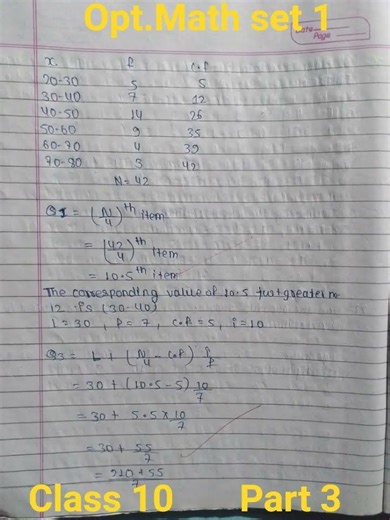 Opt.Math set 1
Date
Page
x. f. c.f
20-30 5 5
30-40 7 12
40-50 14 26
50-60 9 35
60-70 4 39
70-80 3 42
N = 42
Q1 = (N/4)th item
= (42/4)th item
= 10.5th item
The corresponding value of 10.5 just greater no
12 is (30-40)
l = 30, f = 7, c.f = 5, i = 10
Q3 = L + (N/4 - c.f) i/f
= 30 + (10.5 - 5) 10/7
= 30 + 5.5 x 10/7
= 30 + 55/7
= 210+55/7
Class 10 Part 3